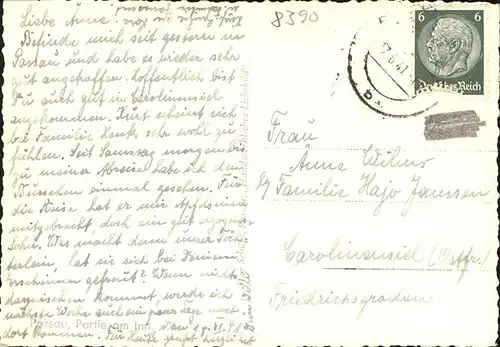 8390
Liebe Änne!
Befinde mich seit gestern in
Passau und habe es wieder sehr
gut angetroffen. Hoffentlich bist
Du auch gut in Carolinensiel
angekommen. Kurt scheint sich
bei Familie Henk sehr wohl zu
fühlen. Seit Samstag morgen bis
zu meiner Abreise habe ich den
Burschen einmal gesehen. Für
die Reise hat er mir Apfelsinen
mitgebracht, doch ein gut erzogener
Sohn. Was macht denn unser Töch-
terlein, hat sie sich bei Deinem
Erscheinen gefreut? Wenn nichts
dazwischen kommt werde ich
nächste Woche auch ein paar Tage nach
dort kommen. Für heute grüßt herzlichst
Passau, Partie am Inn
6 6
Deutsches Reich
Frau
Änne Wilms
c/o Familie Hajo Janssen
Carolinensiel (Ostfr.)
Friedrichsgroden